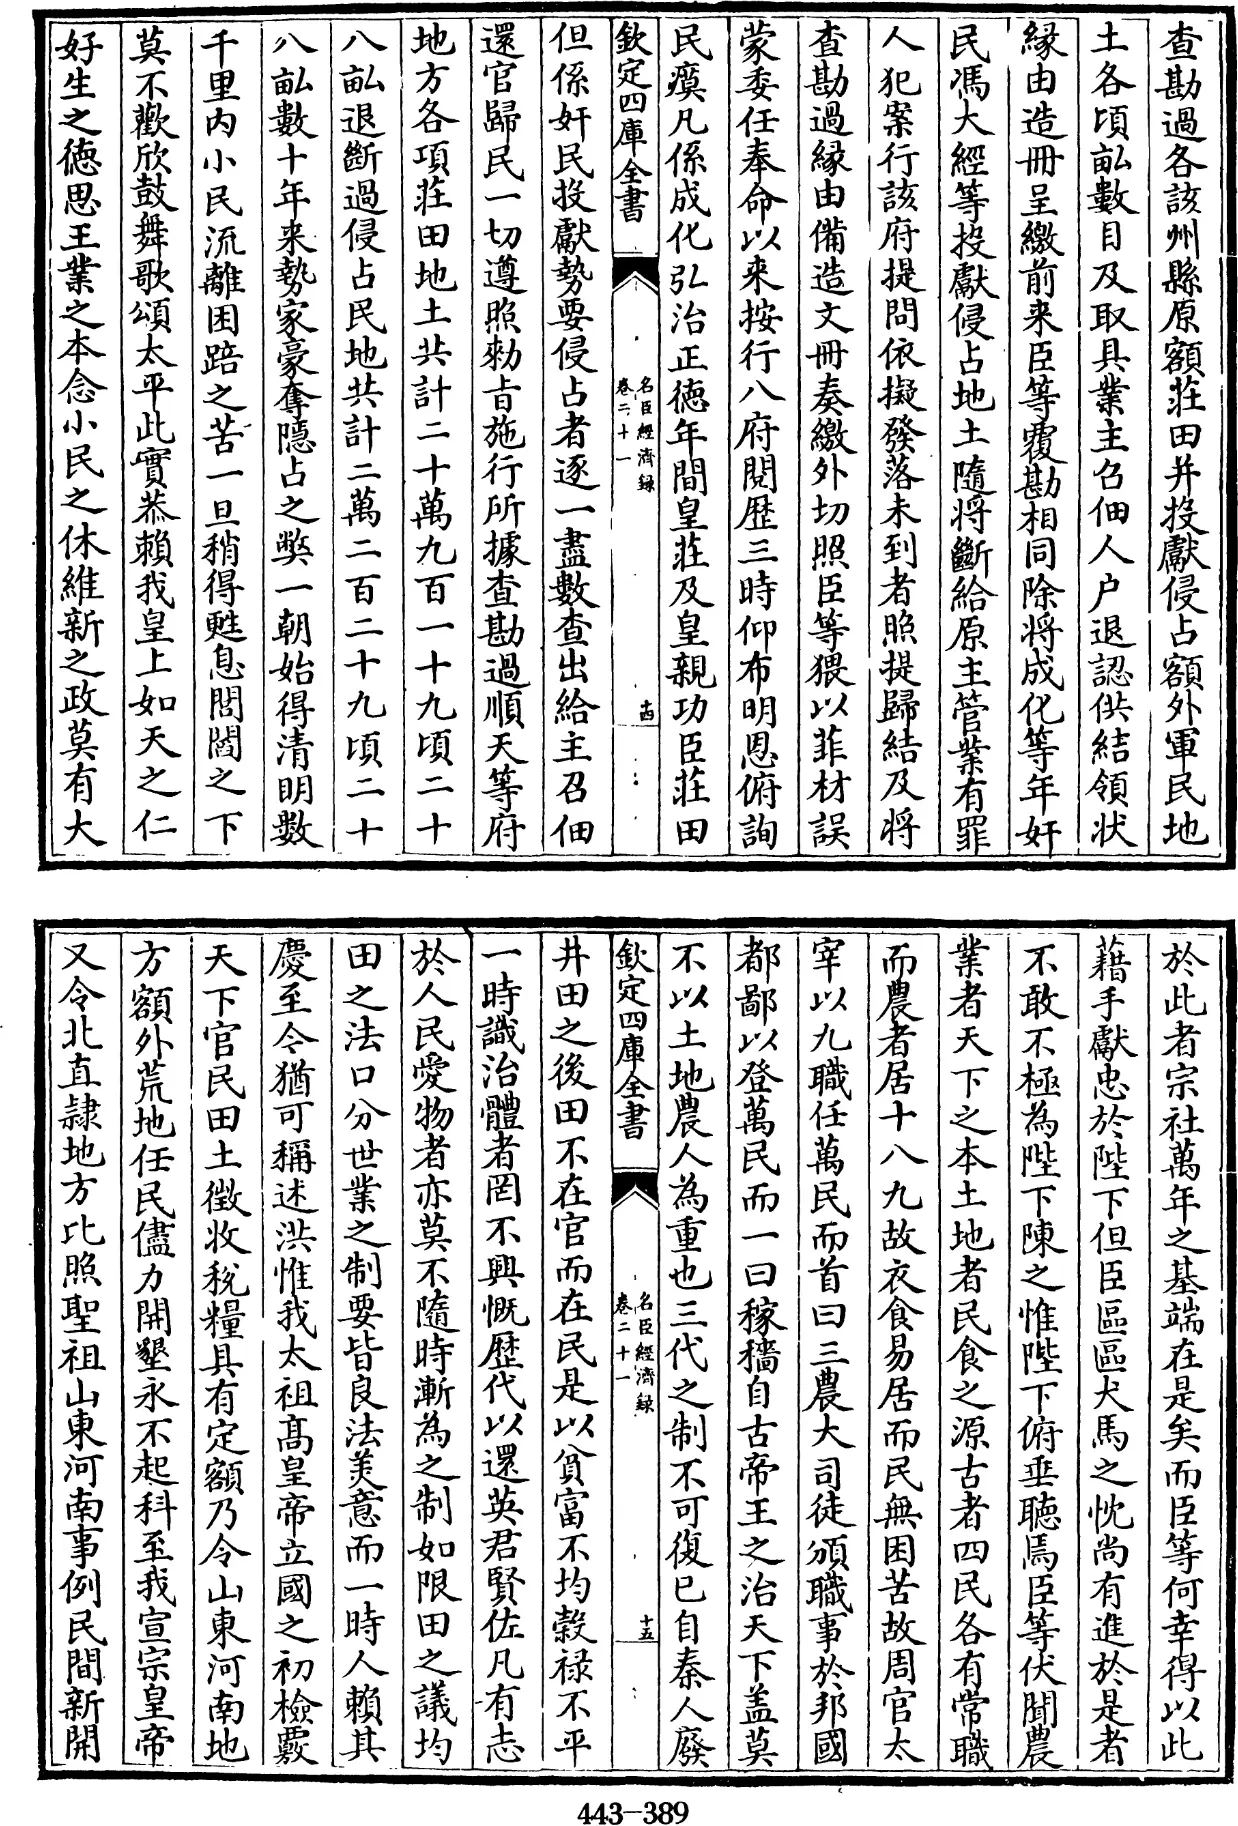 查勘過各該州縣原額莊田并投獻侵占額外軍民地
土各頃畝數目及取具業主召佃人户退認供結領狀
緣由造冊呈繳前来臣等覆勘相同除將成化等年奸
民馮大經等投獻侵占地土隨將斷給原主管業有罪
人犯案行該府提問依擬發落未到者照提歸結及將
查勘過緣由備造文冊奏繳外切照臣等猥以菲材誤
蒙委任奉命以来按行八府閱歷三時仰布明恩俯詢
民瘼凡係成化弘治正德年間皇莊及皇親功臣莊田
欽定四庫全書
名臣經濟録
卷二十一
十四
但係奸民投獻勢要侵占者逐一盡數查出給主召佃
還官歸民一切遵照勑旨施行所據查勘過順天等府
地方各項莊田地土共計二十萬九百一十九頃二十
八畝退斷過侵占民地共計二萬二百二十九頃二十
八畝數十年来勢家豪奪隱占之獘一朝始得清明數
千里内小民流離困踣之苦一旦稍得甦息閭閻之下
莫不歡欣鼓舞歌頌太平此實恭賴我皇上如天之仁
好生之德思王業之本念小民之休維新之政莫有大
於此者宗社萬年之基端在是矣而臣等何幸得以此
藉手獻忠於陛下但臣區區犬馬之忱尚有進於是者
不敢不極為陛下陳之惟陛下俯垂聽焉臣等伏聞農
業者天下之本土地者民食之源古者四民各有常職
而農者居十八九故衣食易居而民無困苦故周官太
宰以九職任萬民而首曰三農大司徒頒職事於邦國
都鄙以登萬民而一曰稼穡自古帝王之治天下盖莫
不以土地農人為重也三代之制不可復已自秦人廢
欽定四庫全書
名臣經濟録
卷二十一
十五
井田之後田不在官而在民是以貧富不均穀禄不平
一時識治體者罔不興慨歴代以還英君賢佐凡有志
於人民愛物者亦莫不隨時漸為之制如限田之議均
田之法口分世業之制要皆良法美意而一時人賴其
慶至今猶可稱述洪惟我太祖髙皇帝立國之初檢覈
天下官民田土徴收稅糧具有定額乃令山東河南地
方額外荒地任民儘力開墾永不起科至我宣宗皇帝
又令北直隷地方比照聖祖山東河南事例民間新開
443-389